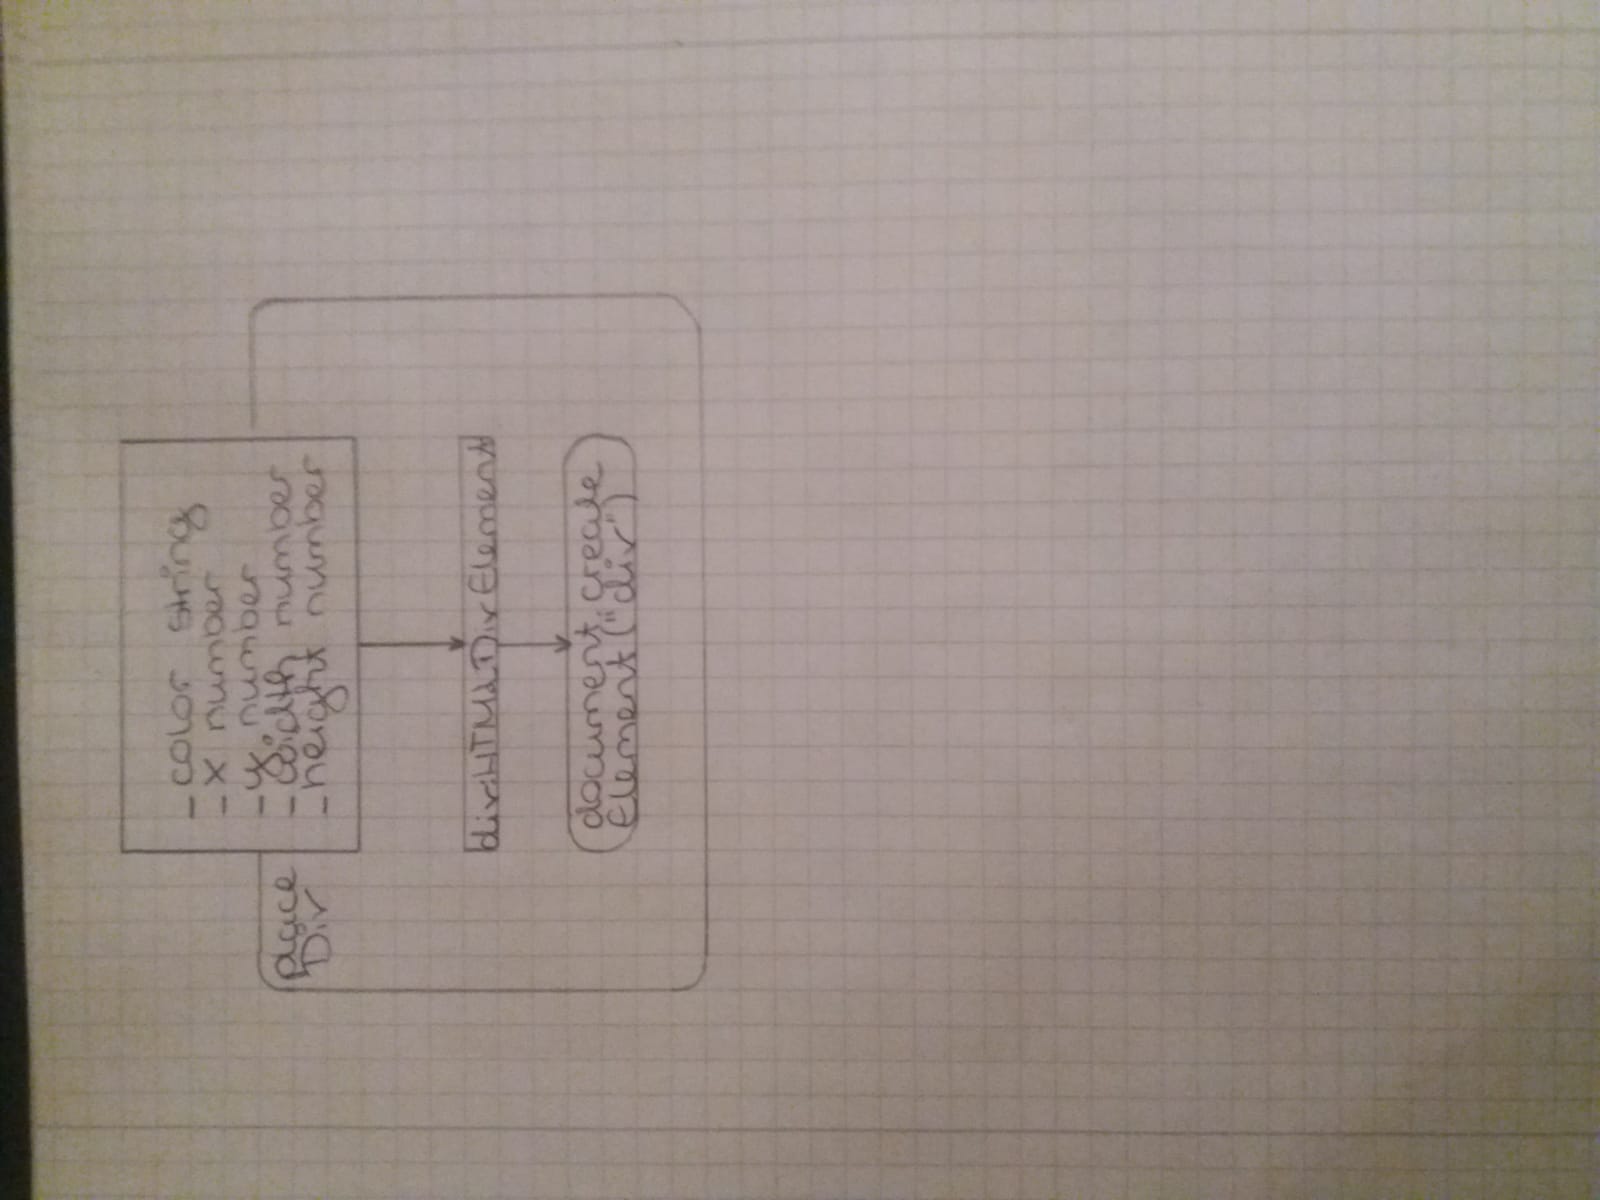 _color string
_x number
_y number
_width number
_height number
place
Div
div:HTMLDivElement
document.create
Element("div")